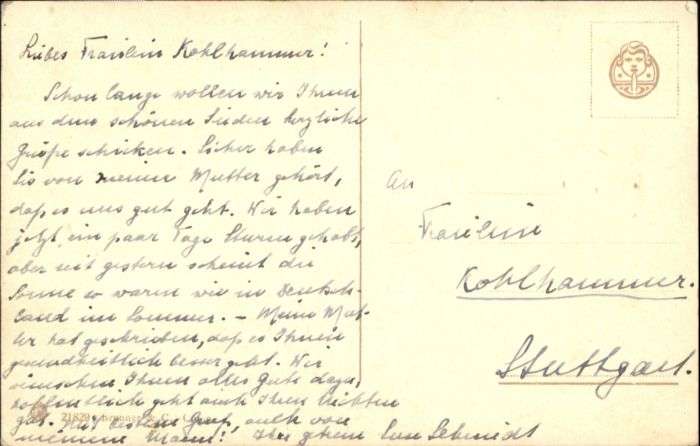 Liebes Fräulein Kohlhammer!
Schon lange wollen wir Ihnen
aus dem schönen Süden herzliche
Grüße schicken. Sicher haben
Sie von meiner Mutter gehört,
daß es uns gut geht. Wir haben
jetzt ein paar Tage Sturm gehabt,
aber seit gestern scheint die
Sonne so warm wie in Deutsch-
land im Sommer. – Meine Mut-
ter hat geschrieben, daß es Ihnen
gesundheitlich besser geht. Wir
wünschen Ihnen alles Gute dazu,
hoffentlich geht auch Ihren
gut. Mit besten Gruß, auch von
meinem Mann! Ihre Schmidt
21829
An
Fräulein
Kohlhammer.
Stuttgart.